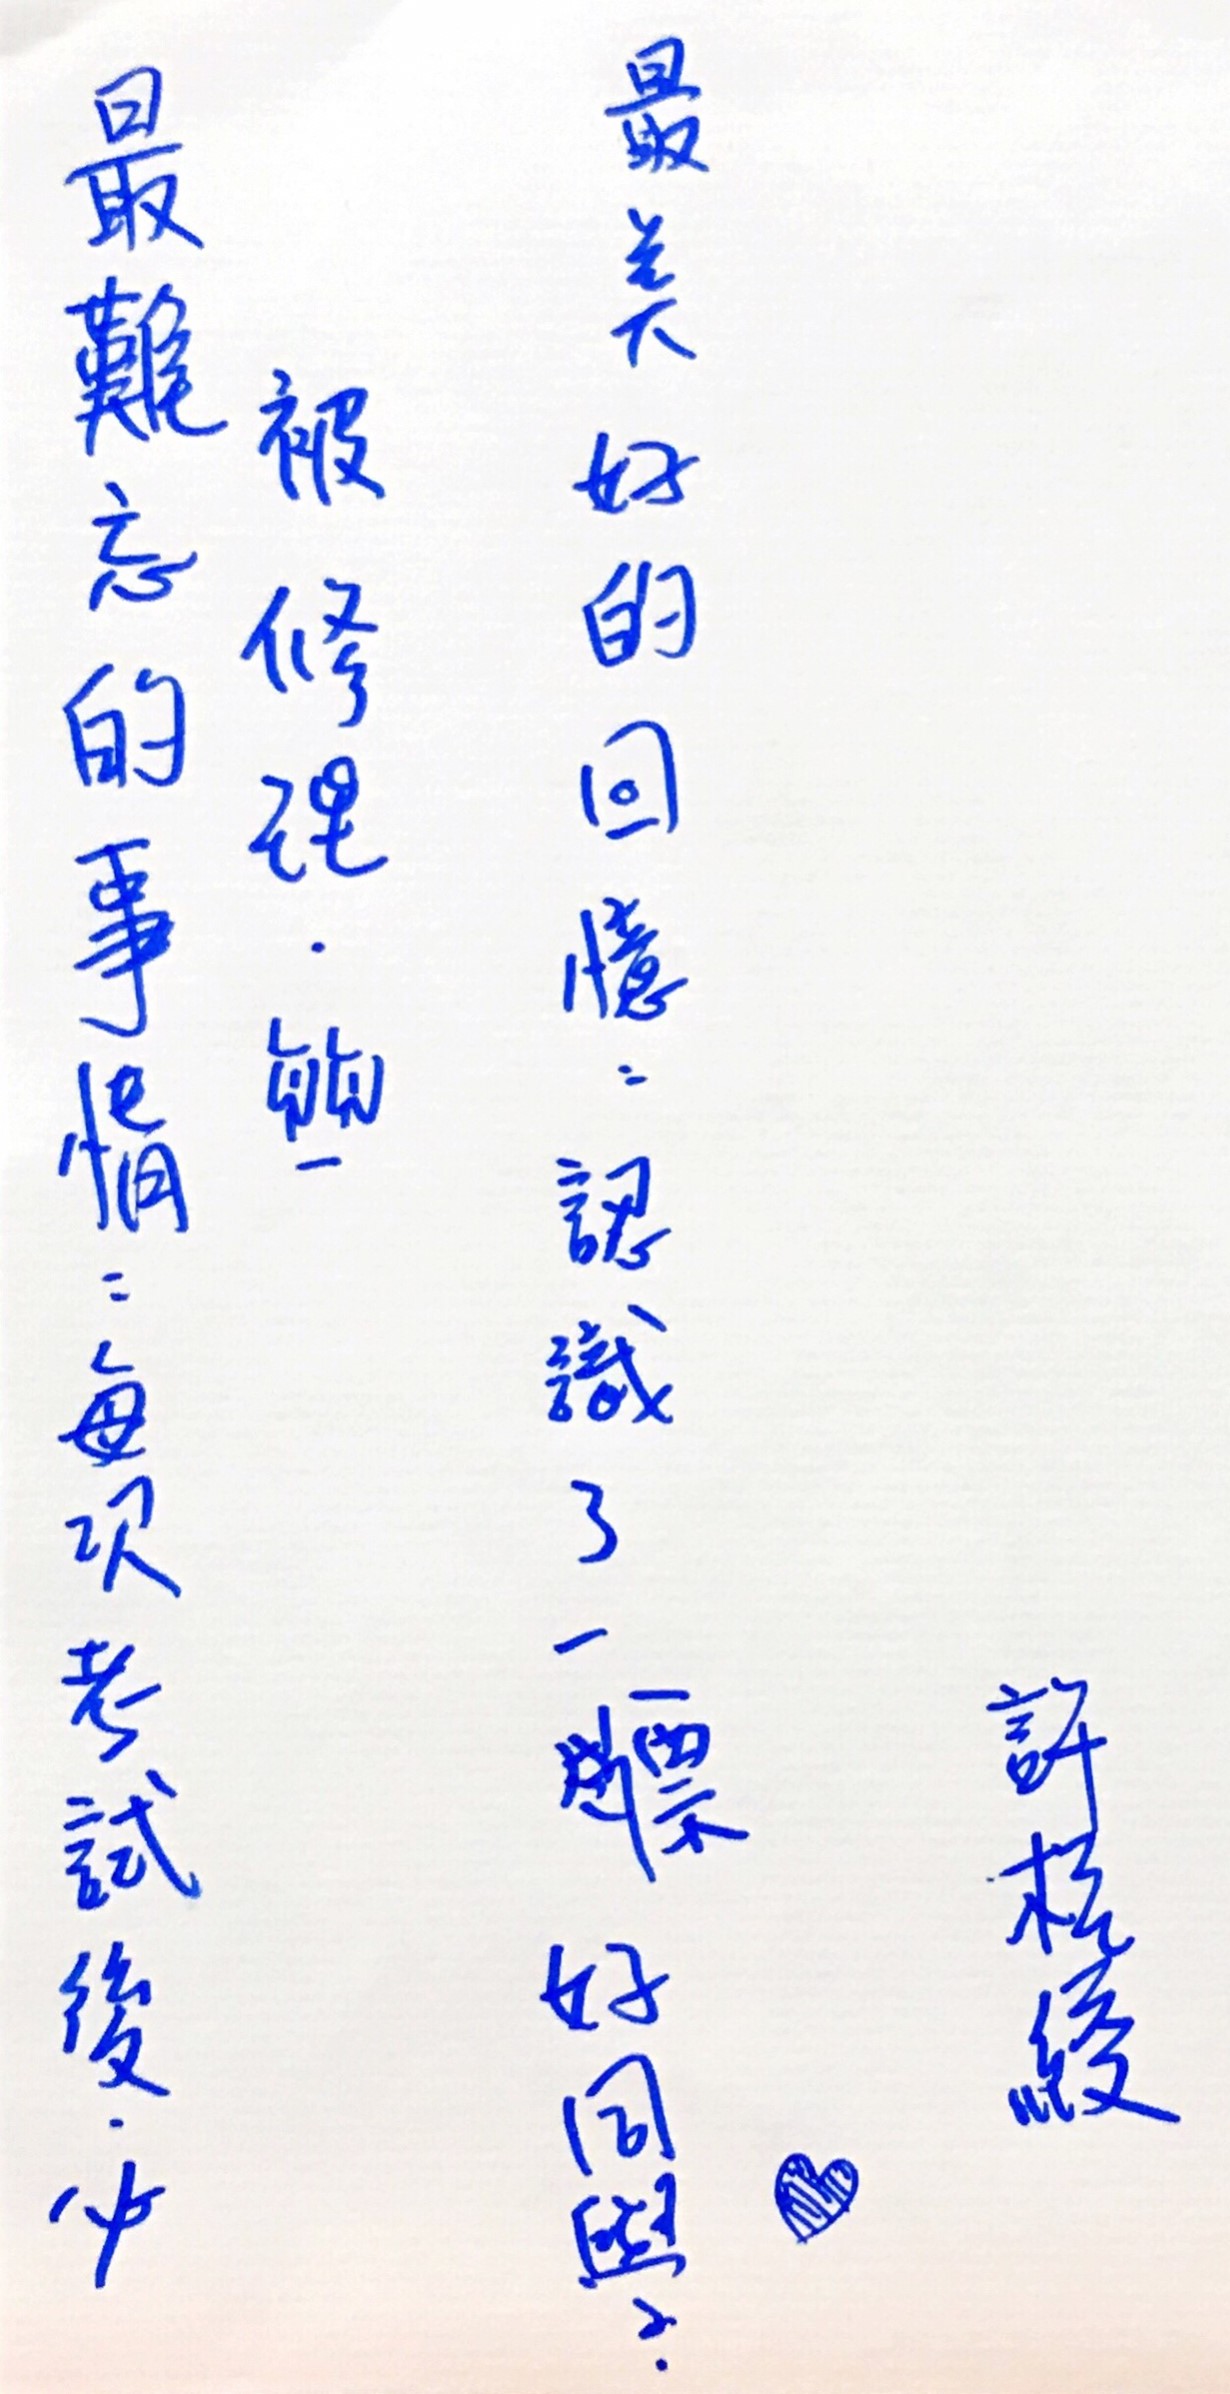 最難忘的事情：每次考試後．必
被修理．
最美好的回憶：認識了一票好同學．
許綾